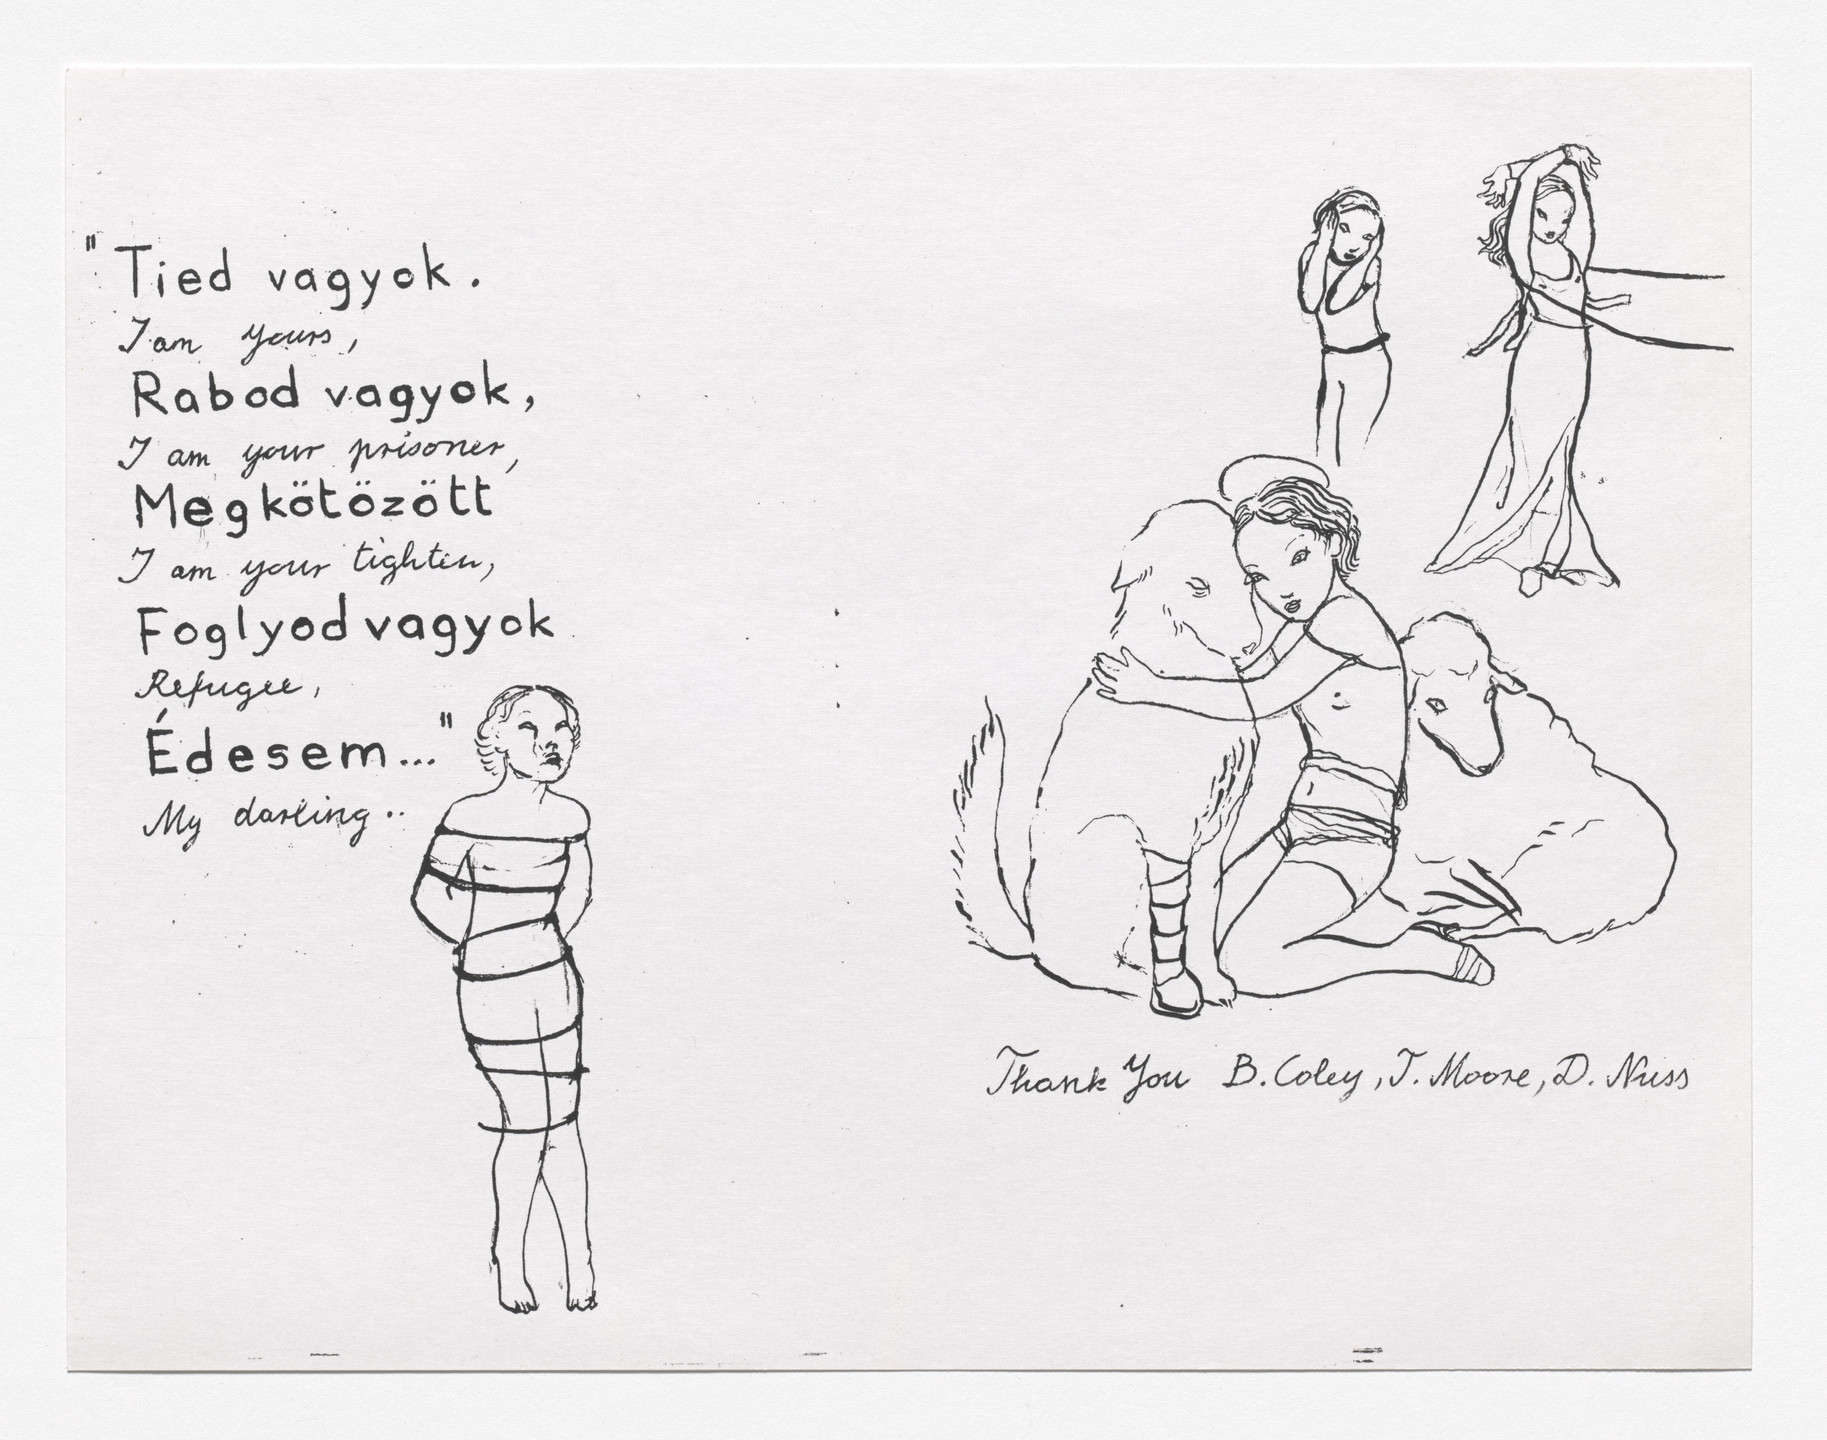 "Tied vagyok.
I am yours,
Rabod vagyok,
I am your prisoner,
Megkötözött
I am your tighten,
Foglyod vagyok
Refugee,
Édesem..."
My darling..
Thank You B. Coley, T. Moore, D. Nuss